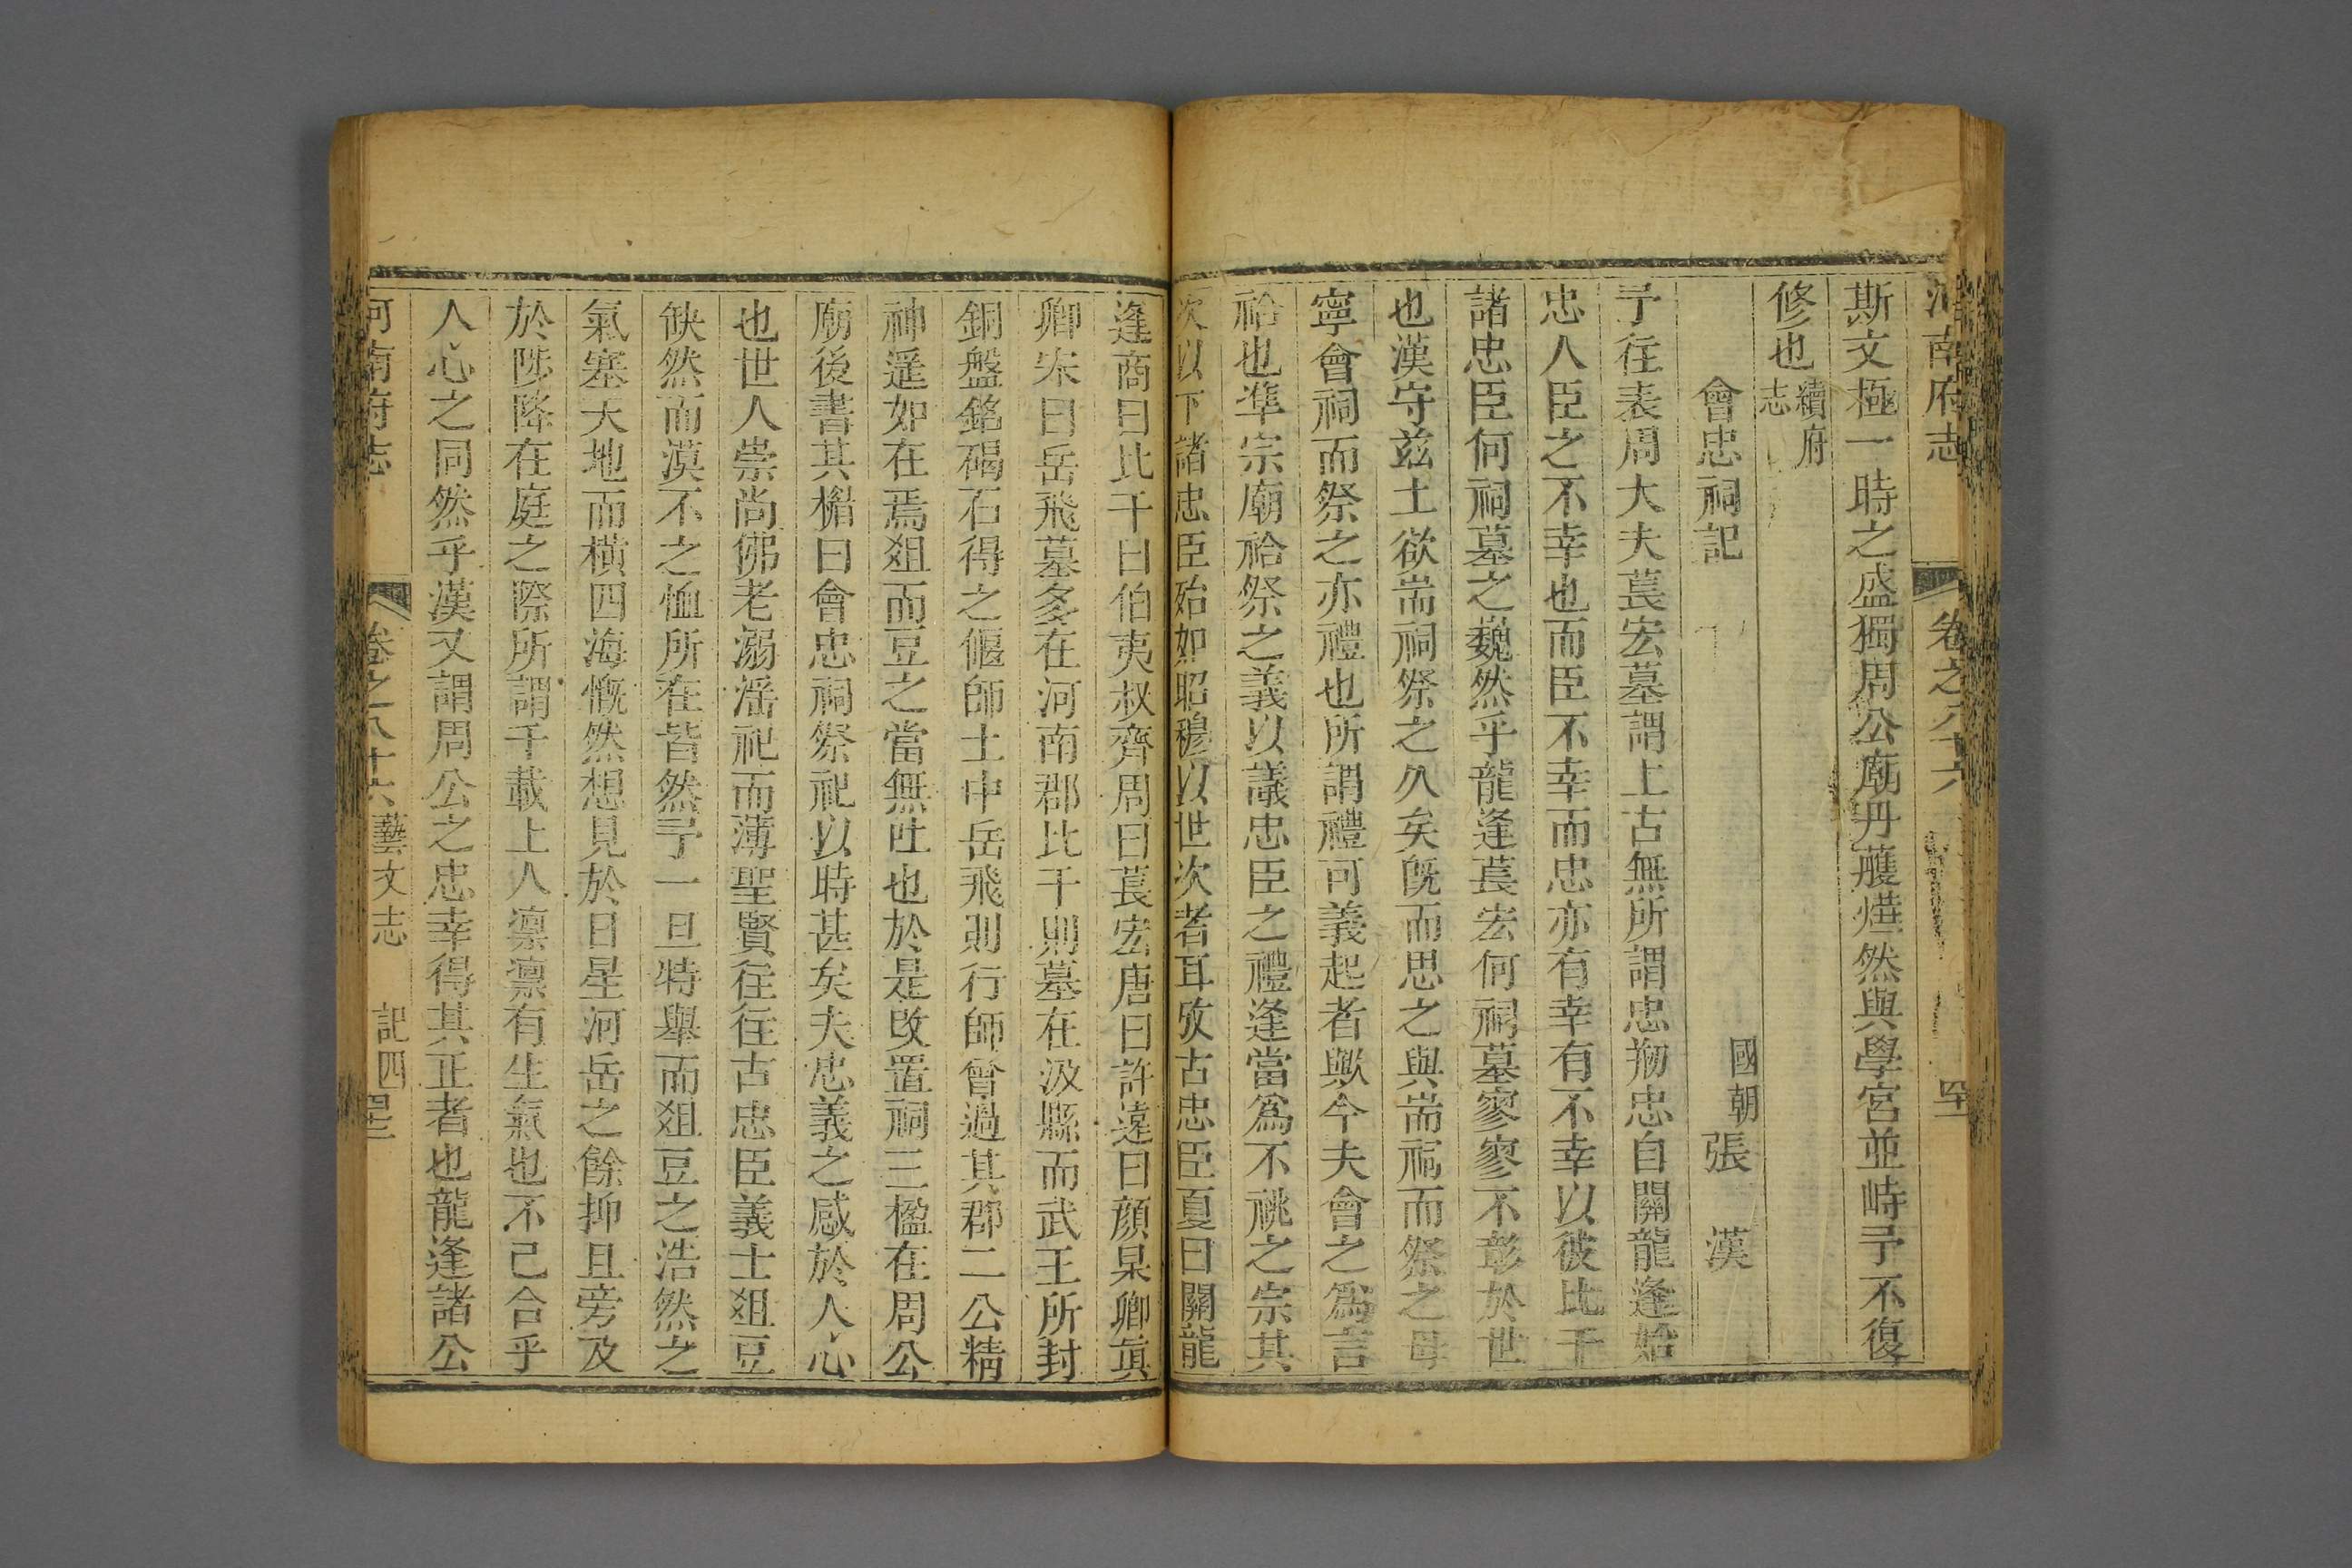 河南府志 卷之八十六
斯文極一時之盛獨周公廟丹雘爗然與學宮並峙予不復
修也續府志
會忠祠記 國朝張 漢
予往表周大夫萇宏墓謂上古無所謂忠剏忠自關龍逢始
忠人臣之不幸也而臣不幸而忠亦有幸有不幸以彼比干
諸忠臣何祠墓之巍然乎龍逢萇宏何祠墓寥寥不彰於世
也漢守兹土欲耑祠祭之久矣旣而思之與耑祠而祭之毋
寧會祠而祭之亦禮也所謂禮可義起者歟今夫會之爲言
祫也準宗廟祫祭之義以議忠臣之禮逢當爲不祧之宗其
次以下諸忠臣殆如昭穆以世次者耳攷古忠臣夏曰關龍
逢商曰比干曰伯夷叔齊周曰萇宏唐曰許遠曰顔杲卿眞
卿宋曰岳飛墓多在河南郡比干則墓在汲縣而武王所封
銅盤銘碣石得之偃師土中岳飛則行師曾過其郡二公精
神遥如在焉俎而豆之當無吐也於是改置祠三楹在周公
廟後書其楣曰會忠祠祭祀以時甚矣夫忠義之感於人心
也世人崇尚佛老溺滛祀而薄聖賢往往古忠臣義士俎豆
缺然而漠不之恤所在皆然予一旦特舉而俎豆之浩然之
氣塞天地而横四海慨然想見於日星河岳之餘抑且旁及
於陟降在庭之際所謂千載上人凛凛有生氣也不已合乎
人心之同然乎漢又謂周公之忠幸得其正者也龍逢諸公
河南府志 卷之八十六藝文志 記四